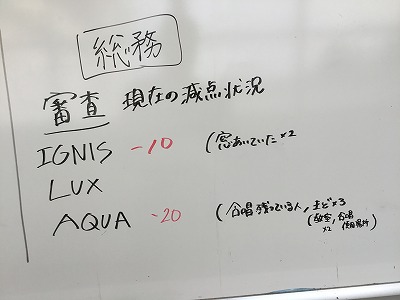 総務
審査 現在の減点状況
IGNIS -10 (窓あいていた×2
LUX
AQUA -20 (合唱残っている人, まど×3
(教室, 合唱
×2